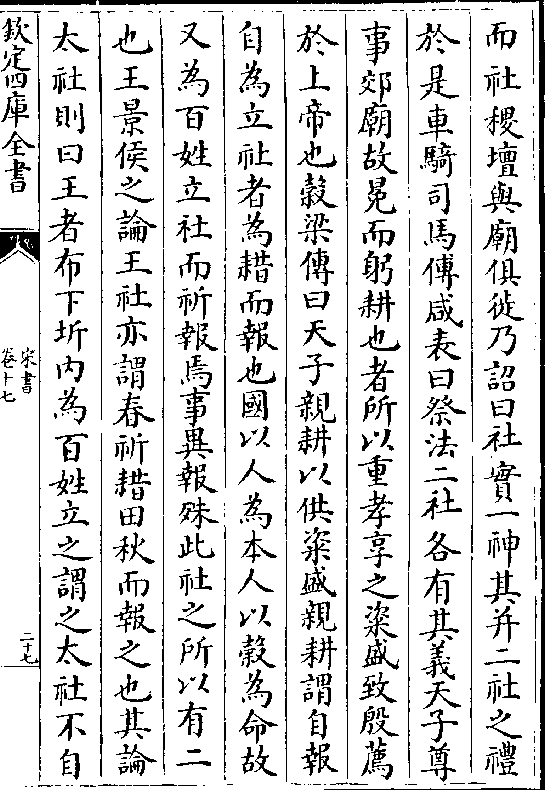 而社稷壇與廟俱徙乃詔曰社實一神其并二社之禮
於是車騎司馬傅咸表曰祭法二社各有其義天子尊
事郊廟故冕而躬耕也者所以重孝享之粢盛致殷薦
於上帝也穀梁傳曰天子親耕以供粢盛親耕謂自報
自為立社者為耤而報也國以人為本人以穀為命故
又為百姓立社而祈報焉事異報殊此社之所以有二
也王景侯之論王社亦謂春祈耤田秋而報之也其論
太社則曰王者布下圻內為百姓立之謂之太社不自
欽定四庫全書
宋書
卷十七
二十七